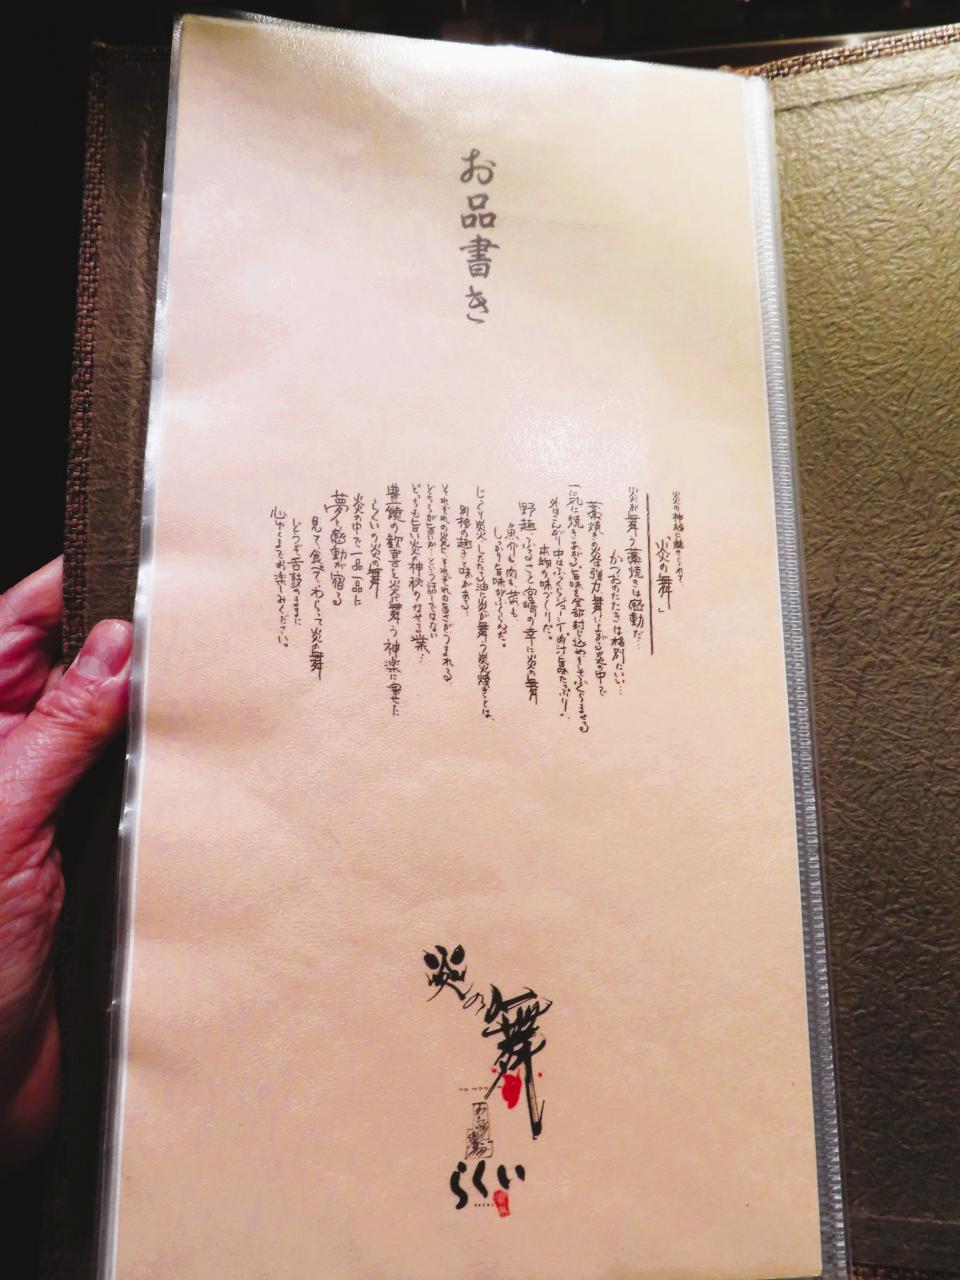 お品書き
炎の神秘に魅せられて、
炎の舞」
炎が舞う藁焼きは感動だ…
かつおのたたきは格別にいい…
藁焼きの炎は強力、舞い上がる炎の中で
一気に焼きあげる。旨味を全部封じ込めをふっくらませる
外はこんがり、中はふっくらジューシー、肉汁、旨味たっぷり!
本物の味づくりだ。
野趣、ふるさと宮崎の幸に炎の舞
魚介も肉も菜も
しっかり旨味がふくらんだ。
じっくり炭火、したたる油に炎が舞う炭火焼きとは、
別格の趣きと味がある。
それぞれの炎に、それぞれの旨さがうまれる。
どちらが旨いか…という話しではない
どっちも旨い炎の神秘のなせる業…
豊饒の歓喜と炎に舞う神楽に寄せた
らくいの炎の舞
炎の中で一品一品に
夢と感動が宿る
見て、食べて、わらって炎の舞
どうぞ舌鼓のままに
心ゆくまでお楽しみください。
炎の舞
らくい